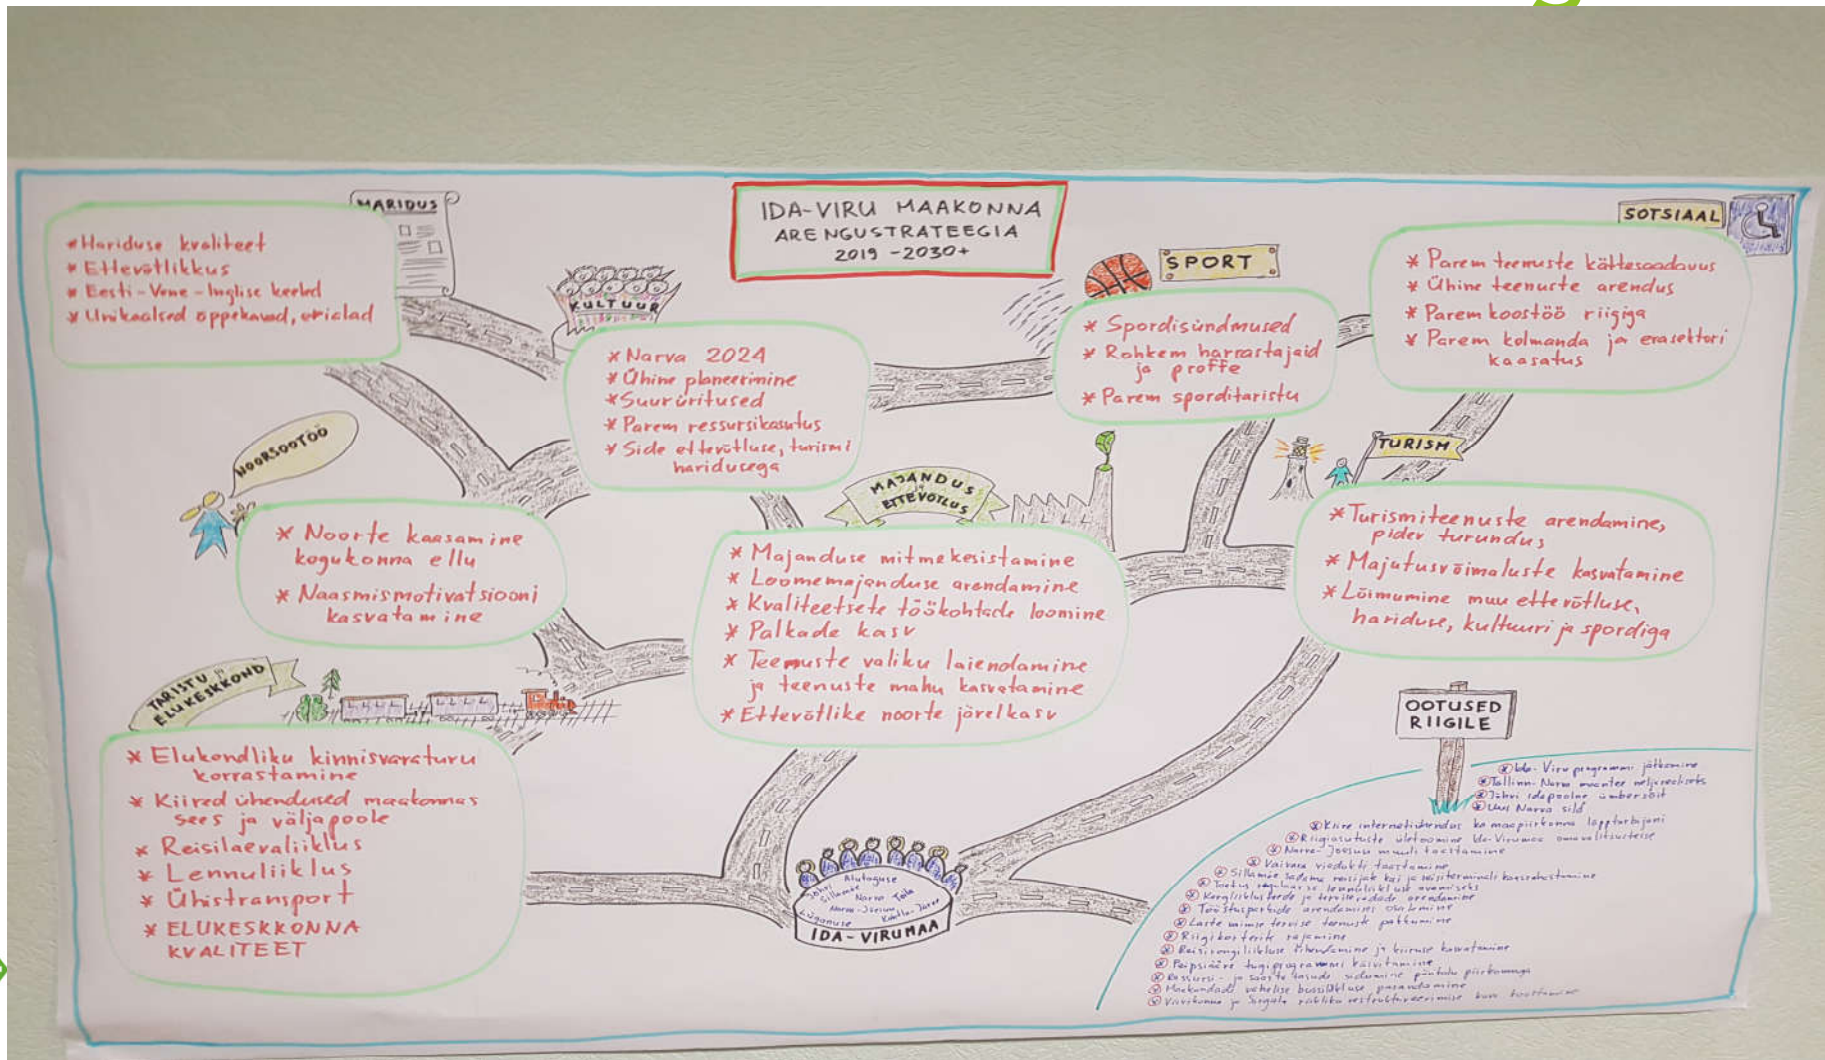 IDA-VIRU MAAKONNA
ARENGUSTRATEEGIA
2019 - 2030+
HARIDUS
* Hariduse kvaliteet
* Ettevõtlikkus
* Eesti - Vene - Inglise keeled
* Unikaalsed õppekavad, erialad
KULTUUR
* Narva 2024
* Ühine planeerimine
* Suurüritused
* Parem ressursikasutus
* Side ettevõtluse, turismi
haridusega
SPORT
* Spordisündmused
* Rohkem harrastajaid
ja proffe
* Parem sporditaristu
SOTSIAAL
* Parem teenuste kättesaadavus
* Ühine teenuste arendus
* Parem koostöö riigiga
* Parem kolmanda ja erasektori
kaasatus
NOORSOOTÖÖ
* Noorte kaasamine
kogukonna ellu
* Naasmismotivatsiooni
kasvatamine
MAJANDUS
JA
ETTEVÕTLUS
* Majanduse mitmekesistamine
* Loomemajanduse arendamine
* Kvaliteetsete töökohtade loomine
* Palkade kasv
* Teenuste valiku laiendamine
ja teenuste mahu kasvatamine
* Ettevõtlike noorte järelkasv
TURISM
* Turismiteenuste arendamine,
pidev turundus
* Majutusvõimaluste kasvatamine
* Lõimumine muu ettevõtluse,
hariduse, kultuuri ja spordiga
TARISTU JA
ELUKESKKOND
* Elukondliku kinnisvaraturu
korrastamine
* Kiired ühendused maakonnas
sees ja väljapoole
* Reisilaevaliiklus
* Lennuliiklus
* Ühistransport
* ELUKESKKONNA
KVALITEET
Alutaguse
Jõhvi
Sillamäe
Narva Toila
Narva-Jõesuu
Kohtla-Järve
Lüganuse
IDA-VIRUMAA
OOTUSED
RIIGILE
* Ida-Viru programmi jätkamine
* Tallinn-Narva maantee neljarealiseks
* Jõhvi idapoolne ümbersõit
* Uus Narva sild
* Kiire internetiühendus ka maapiirkonna lõpptarbijani
* Riigiasutuste ületoomine Ida-Virumaa omavalitsustesse
* Narva-Jõesuu muuli taastamine
* Vaivara viadukti taastamine
* Sillamäe sadama reisijate kai ja reisiterminali kaasrahastamine
* Toetus regulaarse lennuliikluse avamiseks
* Kergliiklusteede ja terviseradade arendamine
* Tööstusparkide arendamises osalemine
* Laste vaimse tervise teenuste pakkumine
* Riigikorterite rajamine
* Reisirongiliikluse tihendamine ja kiiruse kasvatamine
* Peipsiääre tugiprogrammi käivitamine
* Ressursi- ja saaste tasude sidumine päritolu piirkonnaga
* Maakondade vahelise bussiliikluse parandamine
* Viivikonna ja Sirgala restruktureerimise kava